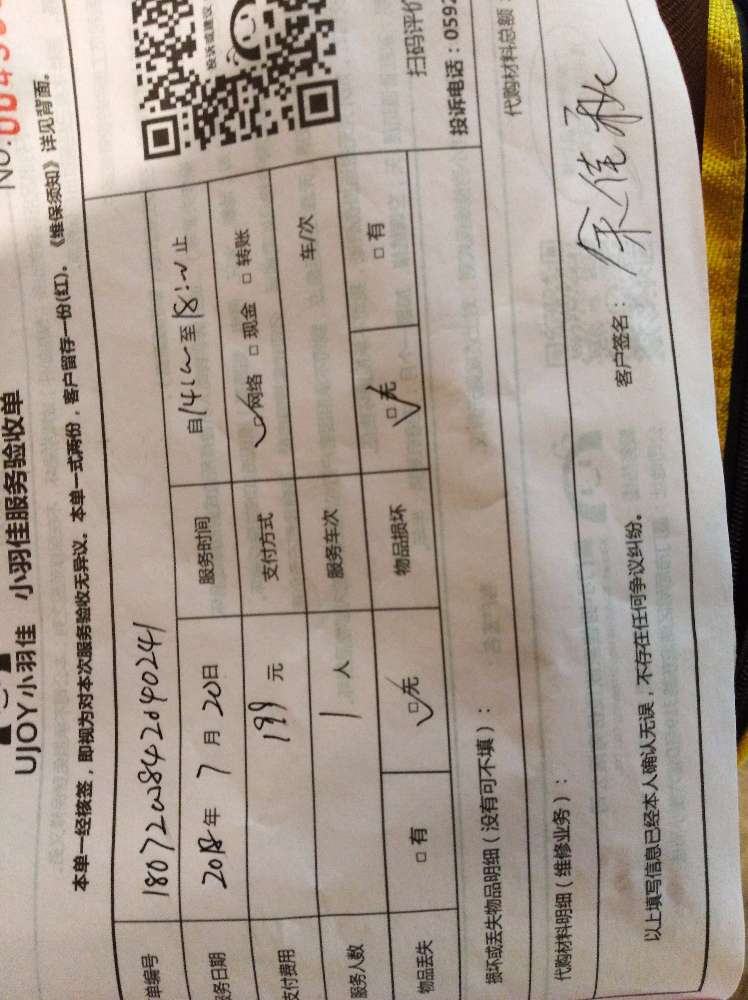 NO.
UJOY小羽佳 小羽佳服务验收单
本单一经核签，即视为对本次服务验收无异议。本单一式两份，客户留存一份(红)。《维保须知》详见背面。
单编号
务日期 2018年 7 月 20日 服务时间 自14:00至18:00止
支付费用 199 元 支付方式 ☑网络 □现金 □转账
服务人数 1 人 服务车次 车/次
物品丢失 □有 ☑无 物品损坏 ☑无 □有
投诉或建议
扫码评价
投诉电话：0592
损坏或丢失物品明细（没有可不填）：
代购材料明细（维修业务）： 代购材料总额：
以上填写信息已经本人确认无误，不存在任何争议纠纷。 客户签名：余佳秋